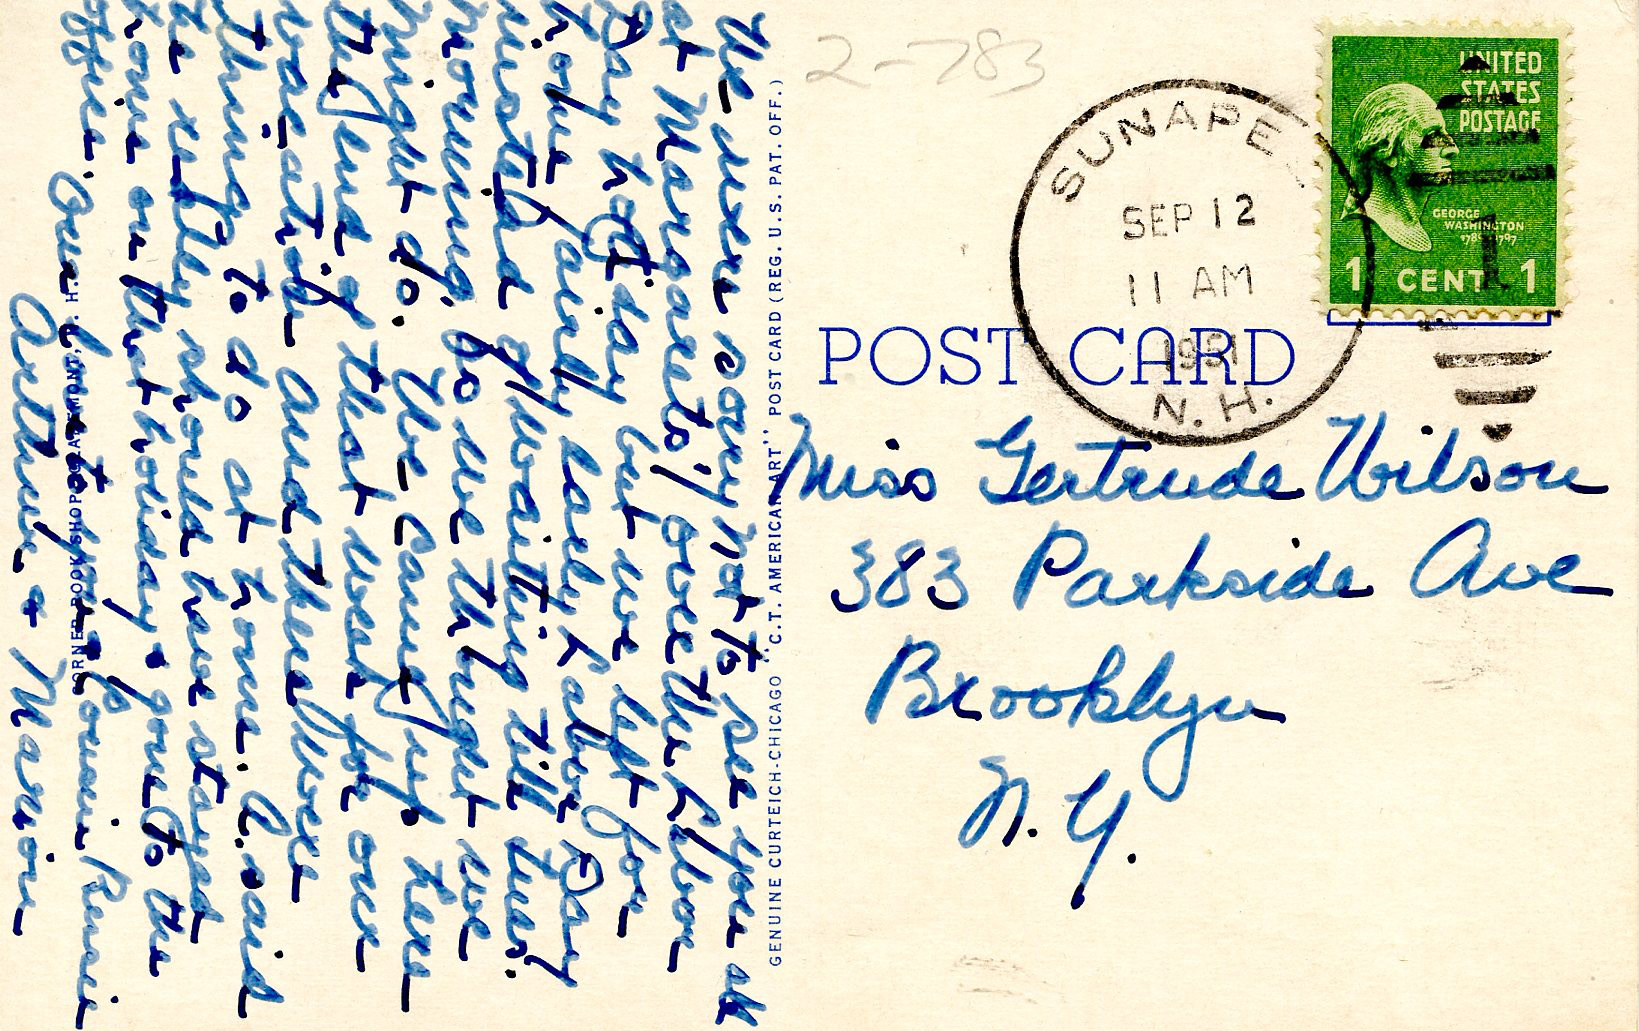 We were sorry not to see you at
at Margarets' over the Labor
Day holiday but we left for
home fairly early Labor Day
instead of waiting till Tues.
morning as we thought we
might do. We came up here
the end of that week for our
vacation and there's more
things to do at home. A. said
he really should have stayed
home on that holiday & gone to the
office. Our love to you & Cousin Bessie
Arthur & Marion
CORNER BOOK SHOP, CLAREMONT, N. H.
GENUINE CURTEICH-CHICAGO "C.T. AMERICAN ART" POST CARD (REG. U.S. PAT. OFF.)
2-783
SUNAPEE
SEP 12
11 AM
1951
N. H.
UNITED
STATES
POSTAGE
GEORGE
WASHINGTON
1789 1797
1 CENT 1
POST CARD
Miss Gertrude Wilson
383 Parkside Ave
Brooklyn
N. Y.